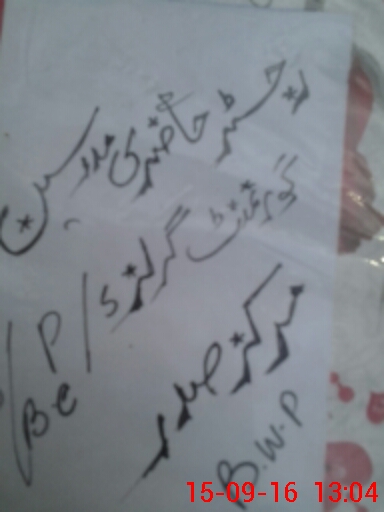 رجسٹر حاضری مدرسین
گورنمنٹ گرلز P/S
مرکز صدر
B.W.P
15-09-16 13:04